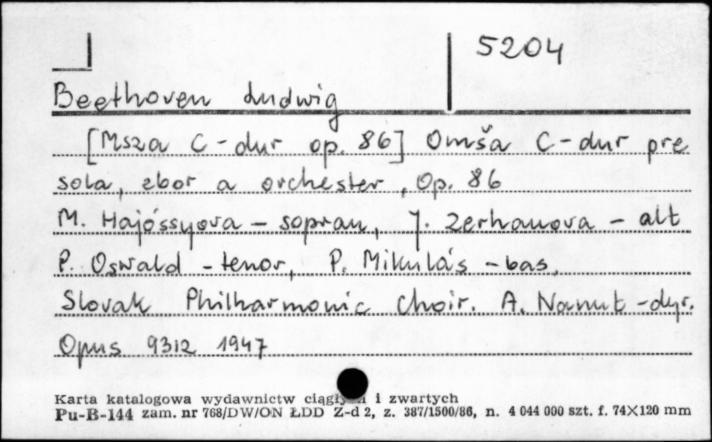 5204
Beethoven Ludwig
[Msza C-dur op. 86] Omša C-dur pre
sola, zbor a orchester, Op. 86
M. Hajóssyova - sopran, J. Zerhanova - alt
P. Oswald - tenor, P. Mikuláš - bas,
Slovak Philharmonic Choir. A. Nanut - dyr.
Opus 9312 1947
Karta katalogowa wydawnictw i zwartych
Pu-B-144 zam. nr 768/DW/ON ŁDD Z-d 2, z. 387/1500/86, n. 4 044 000 szt. f. 74×120 mm